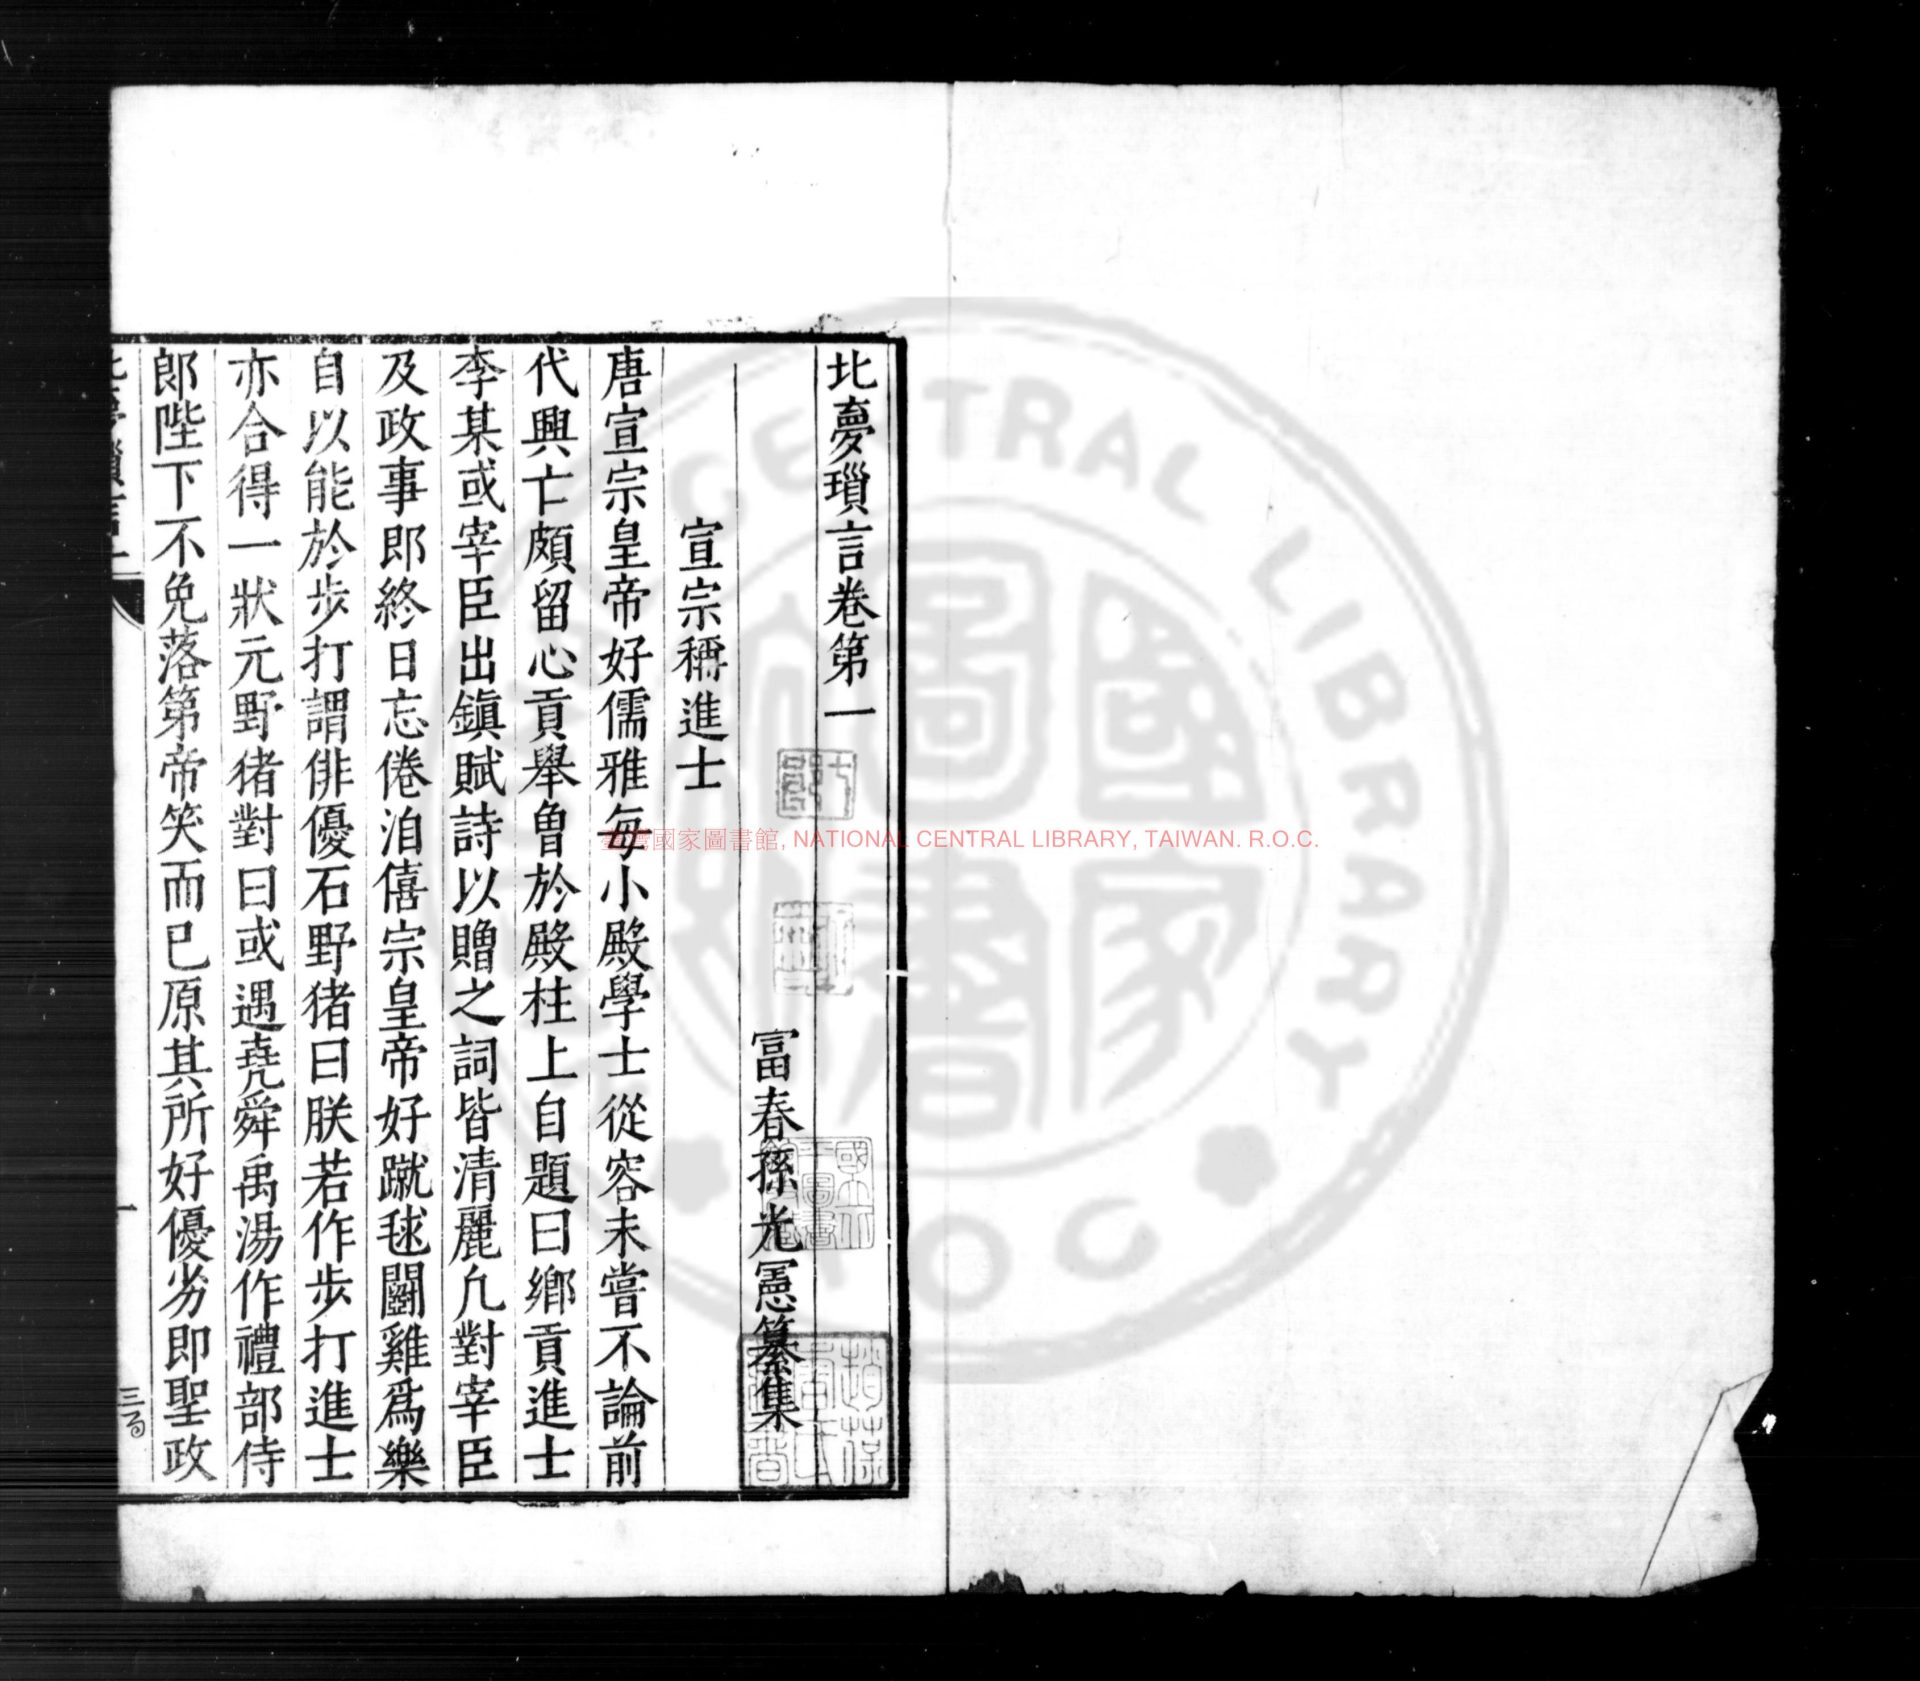 北夢瑣言卷第一
富春孫光憲纂集
宣宗稱進士
唐宣宗皇帝好儒雅每小殿學士從容未嘗不論前
代興亡頗留心貢舉曾於殿柱上自題曰鄉貢進士
李某或宰臣出鎮賦詩以贈之詞皆清麗凢對宰臣
及政事即終日忘倦洎僖宗皇帝好蹴毬鬬雞爲樂
自以能於步打謂俳優石野猪曰朕若作步打進士
亦合得一狀元野猪對曰或遇堯舜禹湯作禮部侍
郎陛下不免落第帝笑而已原其所好優劣即聖政
北夢瑣言一
一
臺灣國家圖書館, NATIONAL CENTRAL LIBRARY, TAIWAN. R.O.C.
CENTRAL LIBRARY
國家圖書